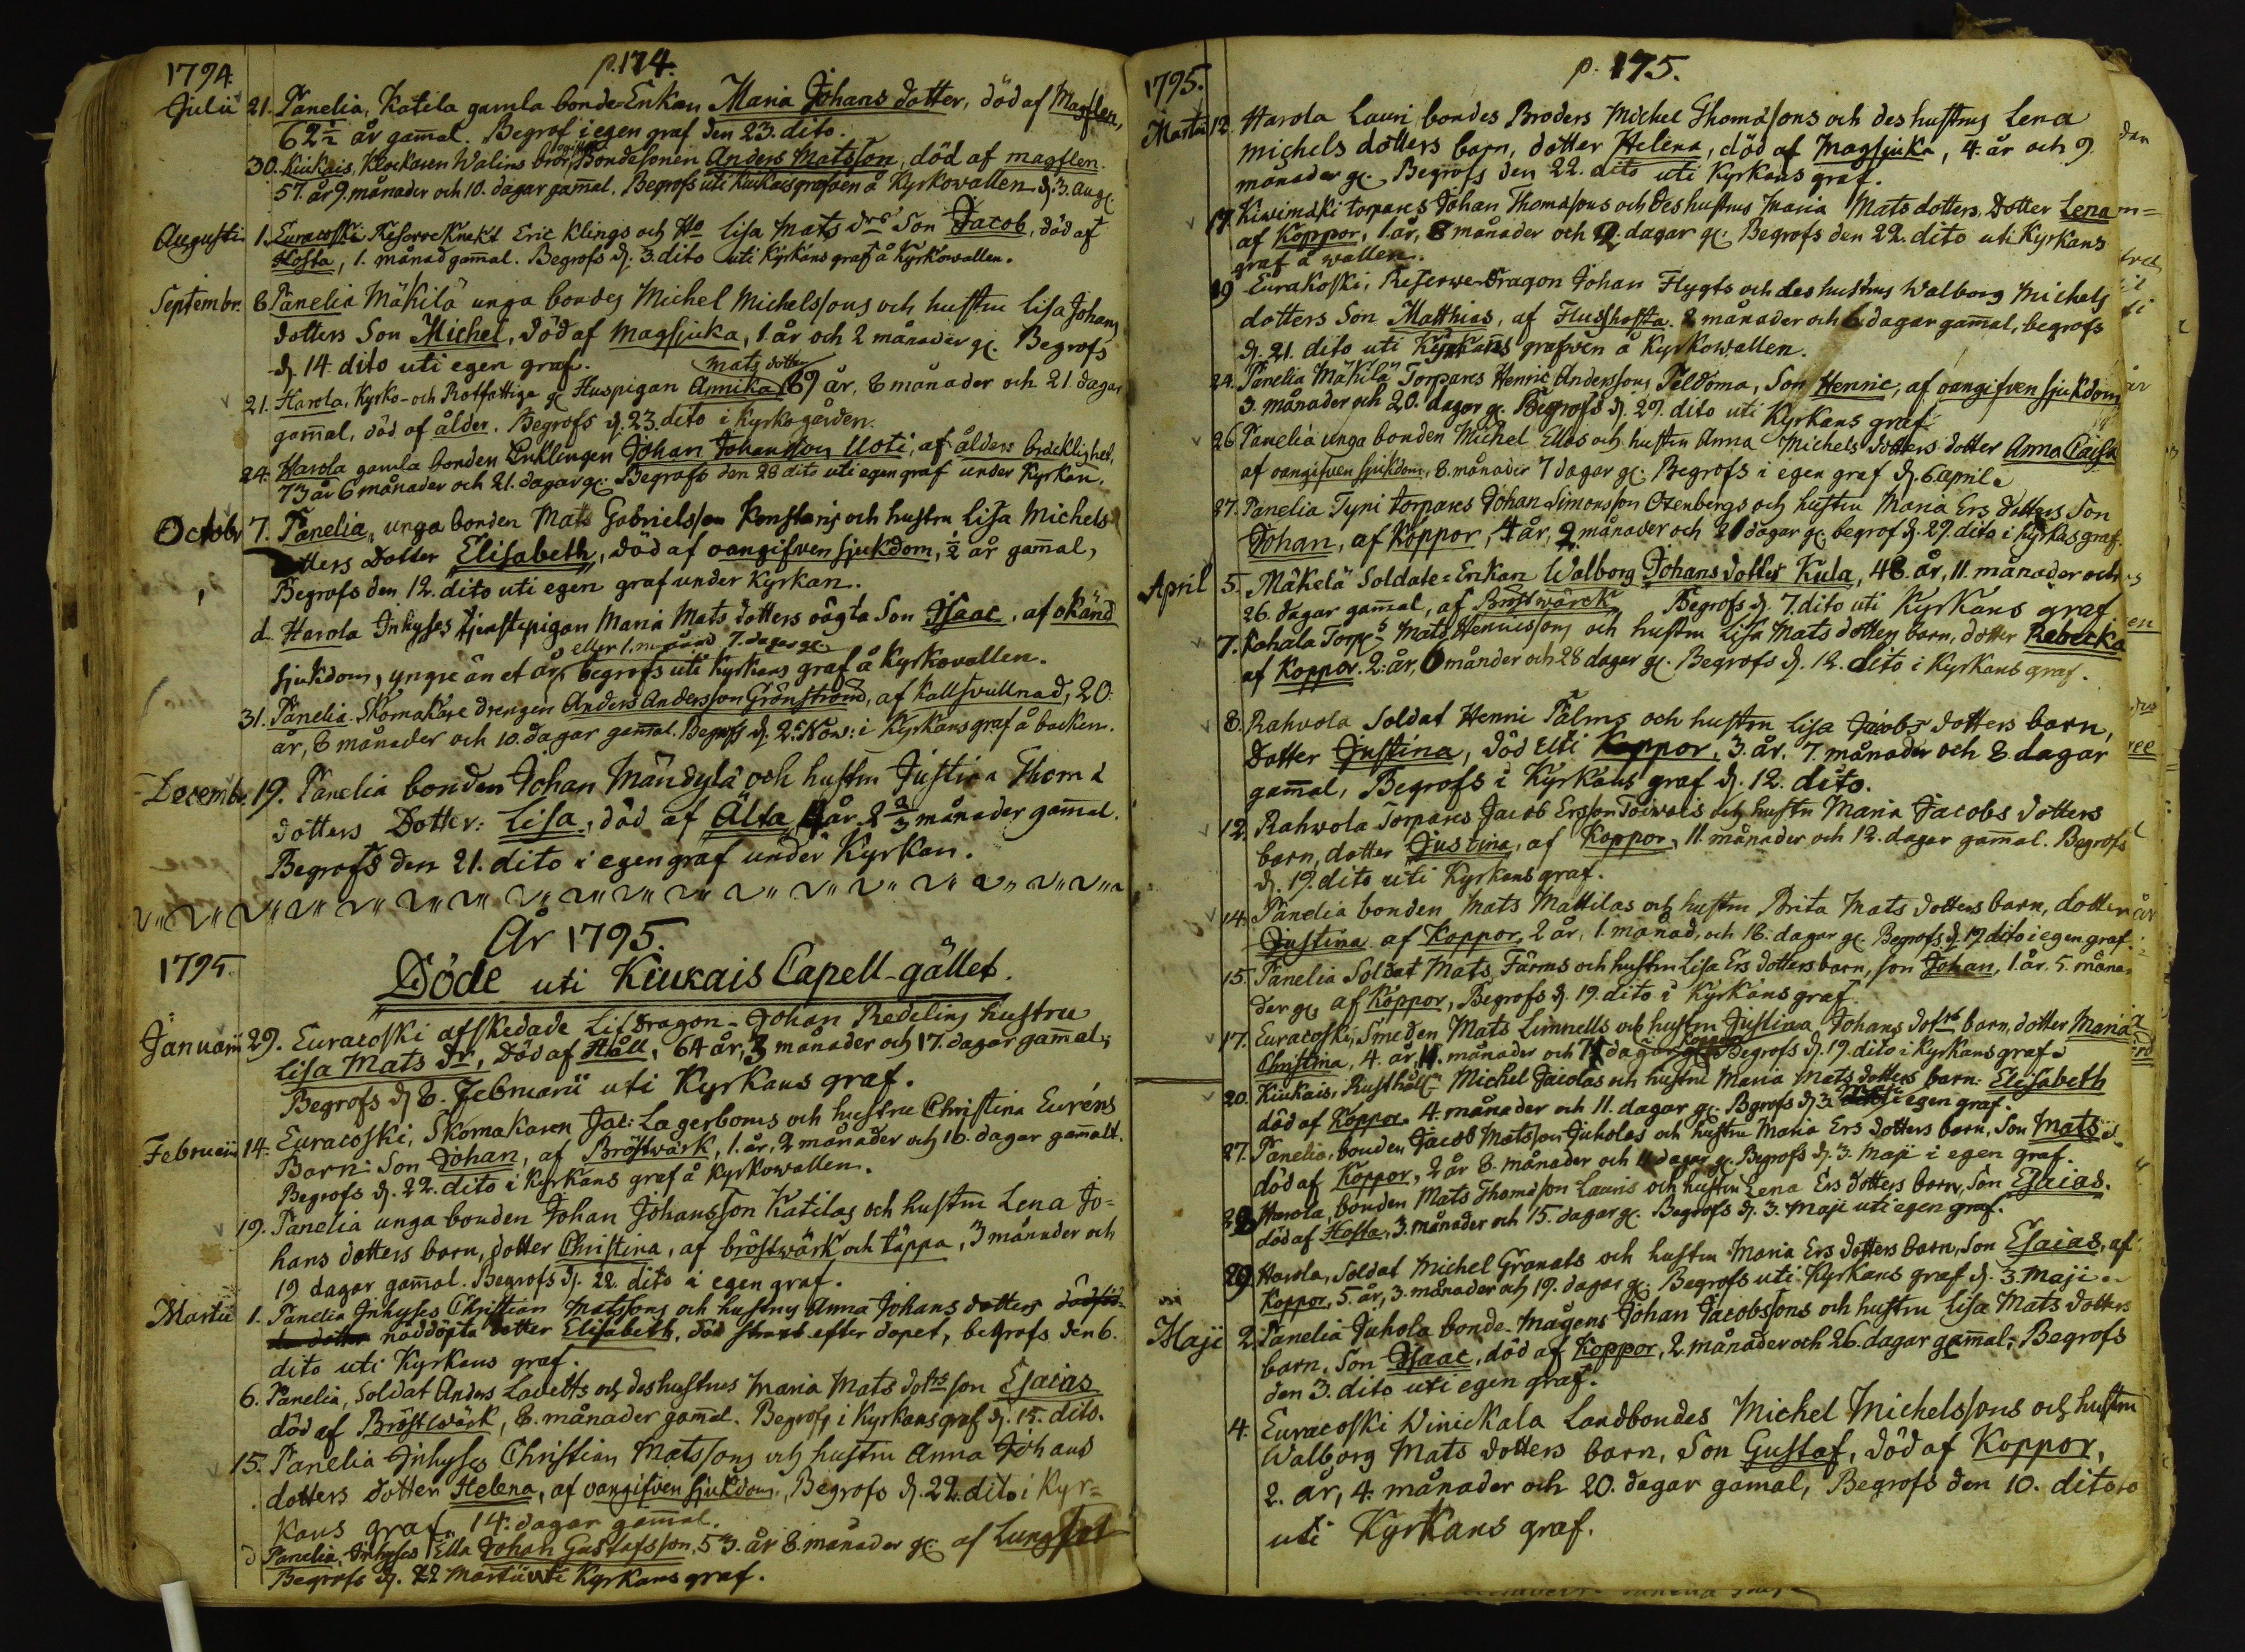 p. 174.
1794.
Julii 21. Panelia, Katila gamla bonde-Enkan Maria Johans dotter, död af Magflen,
62½ år gam̄al. Begrof i egen graf den 23. dito.
30. Kiukais, Klockaren Walins bror, Bondesonen Anders Matsson, död af magflen.
57. år 9. månader och 10. dagar gam̄al. Begrofs uti Kiukais grafven å Kyrkowallen d. 3. aug.
Augusti 1. Euracoski Reserve Knekt Eric Klings och Ho Lisa Mats drs Son Jacob, död af
Hosta, 1. månad gam̄al. Begrofs d. 3. dito uti Kyrkans graf å Kyrkowallen.
Septembr. 8. Panelia Mäkilä unga bondes Michel Michelssons och hustru Lisa Johans
dotters Son Michel, död af Magsjuka, 1. år och 2 månader g. Begrofs
d. 14. dito uti egen graf.
Mats dotter
21. Harola, Kyrko- och Rotfattige g. Huspigan Annika 69 år, 8 månader och 21. dagar
gam̄al, död af ålder. Begrofs d. 23. dito i Kyrkogården.
24. Harola gamla bonden Enklingen Johan Johansson Uoti, af ålders bräcklighet,
73 år 6 månader och 21. dagar g. Begrofs den 28 dito uti egen graf under Kyrkan.
Octobr 7. Panelia, unga bonden Mats Gabrielsson Konstaris och hustru Lisa Michels
dotters Dotter Elisabeth, död af oangifven sjukdom, ½ år gam̄al,
Begrofs den 12. dito uti egen graf under Kyrkan.
d. Harola Inhyses tjenstepigan Maria Mats dotters oägta Son Isaac, af okänd
eller 1. månad 7. dagar g.
sjukdom, yngre än et år, begrofs uti Kyrkans graf å Kyrkovallen.
31. Panelia. Skomakare drengen Anders Andersson Grönstrand, af Kallsvullnad, 20.
år, 8 månader och 10. dagar gam̄al. Begrofs d. 2. Nov: i Kyrkans graf å backen.
Decembr. 19. Panelia bonden Johan Mändylä och hustru Justina Thom d
dotters Dotter: Lisa, död af Älta, 4 år 2 ⅔ månader gam̄al.
Begrofs den 21. dito i egen graf under Kyrkan.
År 1795.
1795.
Döde uti Kiukais Capell-gället.
Januarii 29. Euracoski afskedade Lif Dragon Johan Redelins hustru
Lisa Mats Dr, Död af Håll, 64 år, 3 månader och 17. dagar gam̄al,
Begrofs d. 8. Februarii uti Kyrkans graf.
Februarii 14. Euracoski, Skomakaren Jac: Lagerboms och hustru Christina Euréns
Barn: Son Johan, af Bröstwärk, 1. år, 2 månader och 16. dagar gam̄alt.
Begrofs d. 22. dito i Kyrkans graf å Kyrkowallen.
19. Panelia unga bonden Johan Johansson Katilas och hustru Lena Jo=
hans dotters barn, dotter Christina, af bröstwärk och täppa, 3 månader och
19 dagar gam̄al. Begrofs d. 22. dito i egen graf.
Martii 1. Panelia Inhyses Christian Matssons och hustrus Anna Johans dotters
nöddöpta dotter Elisabeth, död strax efter döpet, begrofs den 6.
dito uti Kyrkans graf.
6. Panelia, Soldat Anders Lavetts och des hustrus Maria Mats dotrs son Esaias
död af Bröstwärk, 8. månader gam̄al. Begrofs i Kyrkans graf d. 15. dito.
15. Panelia Inhyses Christian Matssons och hustru Anna Johans
dotters dotter Helena, af oangifven sjukdom, Begrofs d. 22. dito i Kyr=
kans graf. 14. dagar gam̄al.
d Panelia, Inhyses Ella Johan Gustafsson, 53. år 8. månader g. af Lungsot
Begrofs d. 22 Martii uti Kyrkans graf.
p. 175.
1795.
Martii 12. Harola Lauri bondes Broders Michel Thomassons och des hustrus Lena
Michels dotters barn, dotter Helena, död af Magsjuka, 4. år och 9.
månader g. Begrofs den 22. dito uti Kyrkans graf.
17. Kiwimäki torpares Johan Thomassons och Des hustrus Maria Mats dotters, Dotter Lena
af Koppor, 1. år, 8 månader och 2. dagar g. Begrofs den 22. dito uti Kyrkans
graf å wallen.
19 Eurakoski, Reserwe-Dragon Johan Flygts och des hustrus Walborg Michels
dotters Son Matthias, af Hushosta. 2 månader och 6. dagar gam̄al, begrofs
d. 21. dito uti Kyrkans grafven å Kyrkowallen.
24. Panelia Mäkilä Torpares Henric Anderssons Peldoma, Son Henric, af oangifven sjukdom,
3. månader och 20. dagar g. Begrofs d. 29. dito uti Kyrkans graf.
26. Panelia unga bonden Michel Ellas och hustru Anna Michels dotters dotter Anna Caisa
af oangifven sjukdom, 8. månader 7 dagar g. Begrofs i egen graf d. 6 april.
27. Panelia Tyni torpares Johan Simonsson Otenbergs och hustru Maria Ers dotters Son
Johan, af Koppor, 4 år, 2. månader och 21 dagar g. begrof d. 29. dito i Kyrkas graf.
April 5. Mäkelä Soldate-Enkan Walborg Johans dotter Kula, 48. år, 11. månader och
26. dagar gam̄al, af Bröstwärck. Begrofs d. 7. dito uti Kyrkans graf
7. Kahala Torps Mats Henricssons och hustru Lisa Mats dotters barn, dotter Rebecka
af Koppor. 2. år, 6 månder och 28 dagar g. Begrofs d. 12. dito i Kyrkans graf.
8. Rahvola Soldat Henric Palms och hustru Lisa Jacobs dotters barn,
Dotter Justina, död uti Koppor, 3. år. 7. månader och 8 dagar
gam̄al, Begrofs i Kyrkans graf d. 12. dito.
12. Rahwola Torpares Jacob Ersson Toiwois och hustru Maria Jacobs dotters
barn, dotter Justina, af Koppor, 11. månader och 12. dagar gam̄al. Begrofs
d. 19. dito uti Kyrkans graf.
14. Panelia bonden Mats Mattilas och hustru Brita Mats dotters barn, dotter
Justina af Koppor, 2 år, 1. månad, och 16. dagar g. Begrofs d. 19 dito i egen graf.
15. Panelia Soldat Mats Farms och hustru Lisa Ers dotters barn, son Johan, 1. år. 5. måna=
der g. af Koppor, Begrofs d. 19. dito i Kyrkans graf.
17. Euracoski, Smeden Mats Limnells och hustru Justina Johans dotrs barn, dotter Maria
Christina, 4. år, 11. månader och dagar Begrofs d. 19. dito i Kyrkans graf.
20. Kiukais, Rusthåll: Michel Jaicolas och hustru Maria Mats dotters barn: Elisabeth
död af Koppor. 4. månader och 11. dagar g. Bgrofs d. 3. Maji i egen graf.
27. Panelia, bonden Jacob Matsson Juholas och hustru Maria Ers dotters barn, Son Mats
död af Koppor, 2 år 8. månader och 11 dagar g. Begrofs d. 3. Maji i egen graf.
28 Harola, bonden Mats Thomasson Lauris och hustru Lena Ers dotters barn, Son Esaias.
död af Hosta, 3. månader och 15. dagar g. Begrofs d. 3. Maji uti egen graf.
29 Harola, Soldat Michel Granats och hustru Maria Ers dotters barn, Son Esaias, af
Koppor, 5. år, 3. månader och 19. dagar g. Begrofs uti Kyrkans graf d. 3. Maji
Maji 2. Panelia Juhola bonde-Mågens Johan Jacobssons och hustru Lisa Mats dotters
barn, Son Isaac, död af Koppor, 2. månader och 26. dagar gam̄al, Begrofs
den 3. dito uti egen graf.
4. Euracoski Winickala Landbondes Michel Michelssons och hustru
Walborg Mats dotters barn, Son Gustaf, död af Koppor,
2. år, 4. månader och 20. dagar gamal, Begrofs den 10. dito
uti Kyrkans graf.